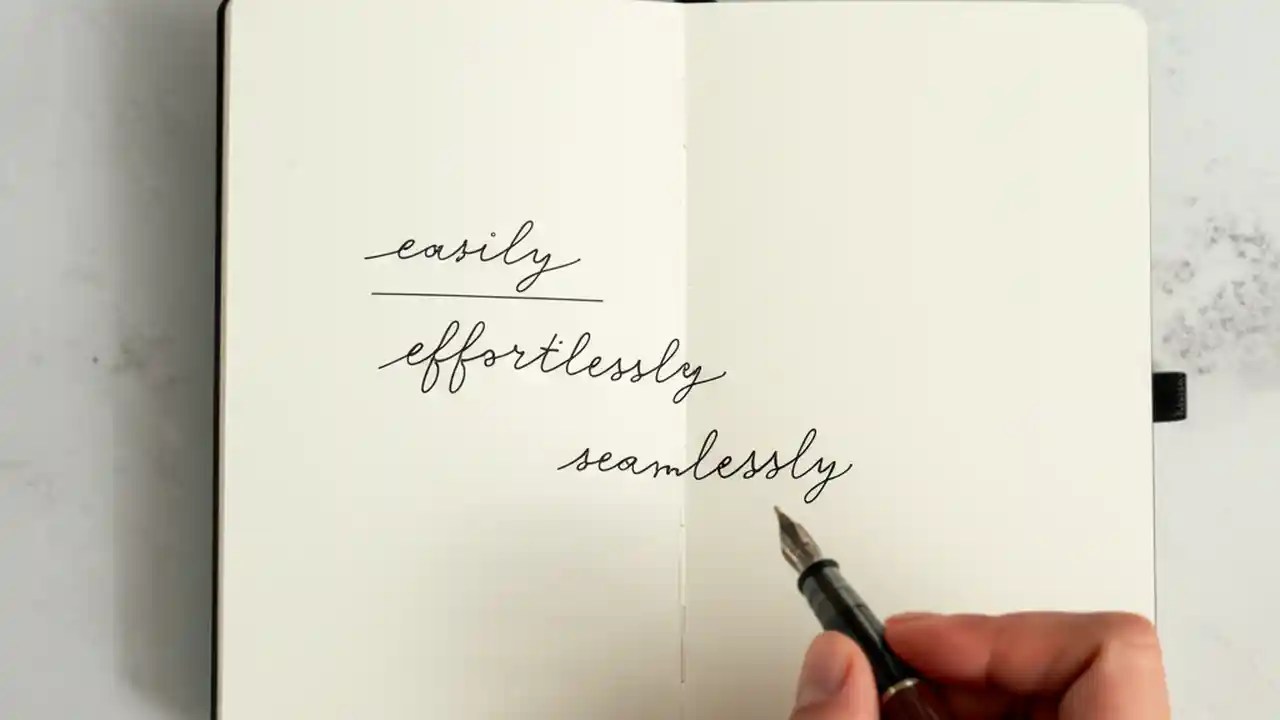 easily
effortlessly
seamlessly